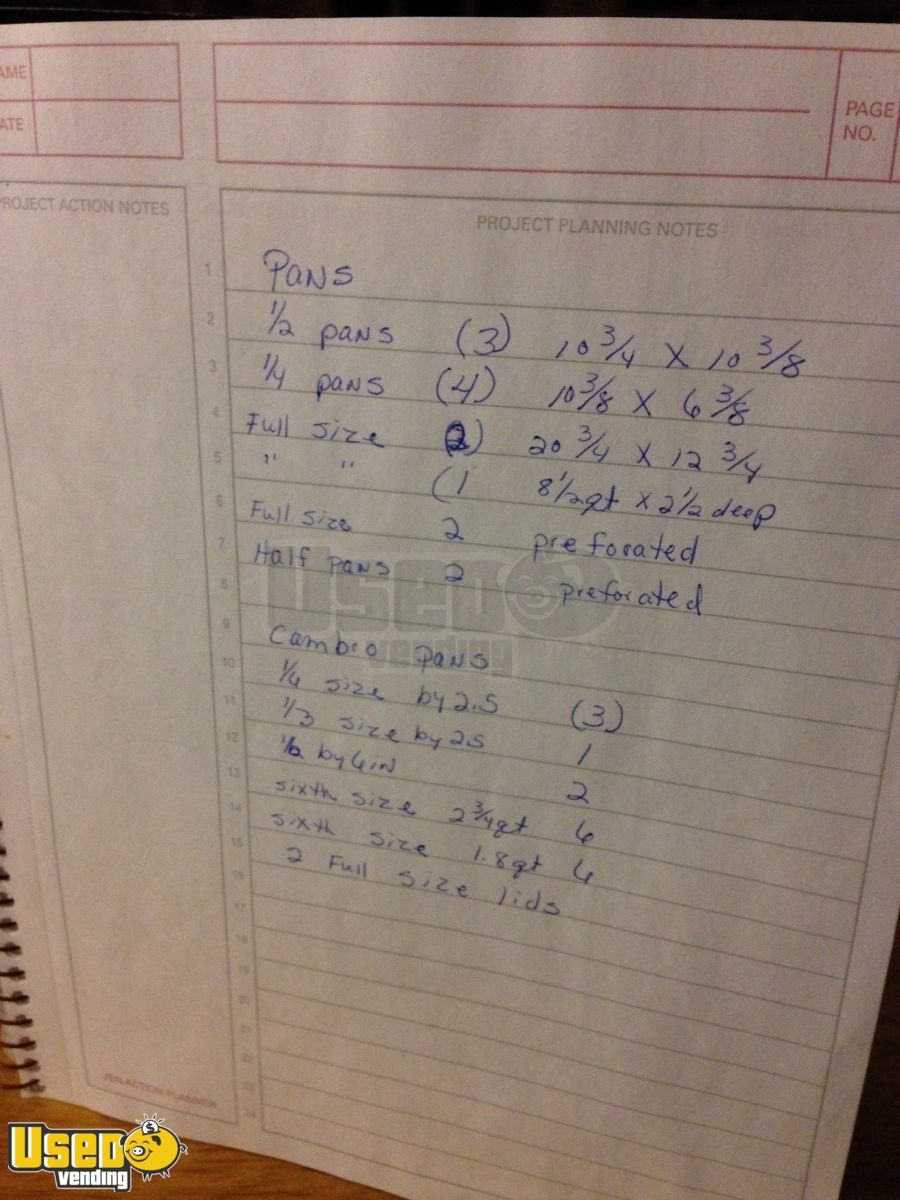 AME
ATE
PAGE NO.
PROJECT ACTION NOTES
PROJECT PLANNING NOTES
1 Pans
2 1/2 pans (3) 10 3/4 X 10 3/8
3 1/4 pans (4) 10 3/8 X 6 3/8
4 Full size (2) 20 3/4 X 12 3/4
5 " " (1 8 1/2 qt x 2 1/2 deep
6 Full size 2 preforated
7 Half pans 2 preforated
8
9 Cambro pans
10 size by 2.5 (3)
11 1/3 size by 25 1
12 by 2
13 sixth size 2 3/4 qt 6
14 sixth size 1.8 qt 6
15 2 Full size lids
16
17
18
19
20
21
22
23
24
JEN ACTION PLANNER
USED vending
USED vending